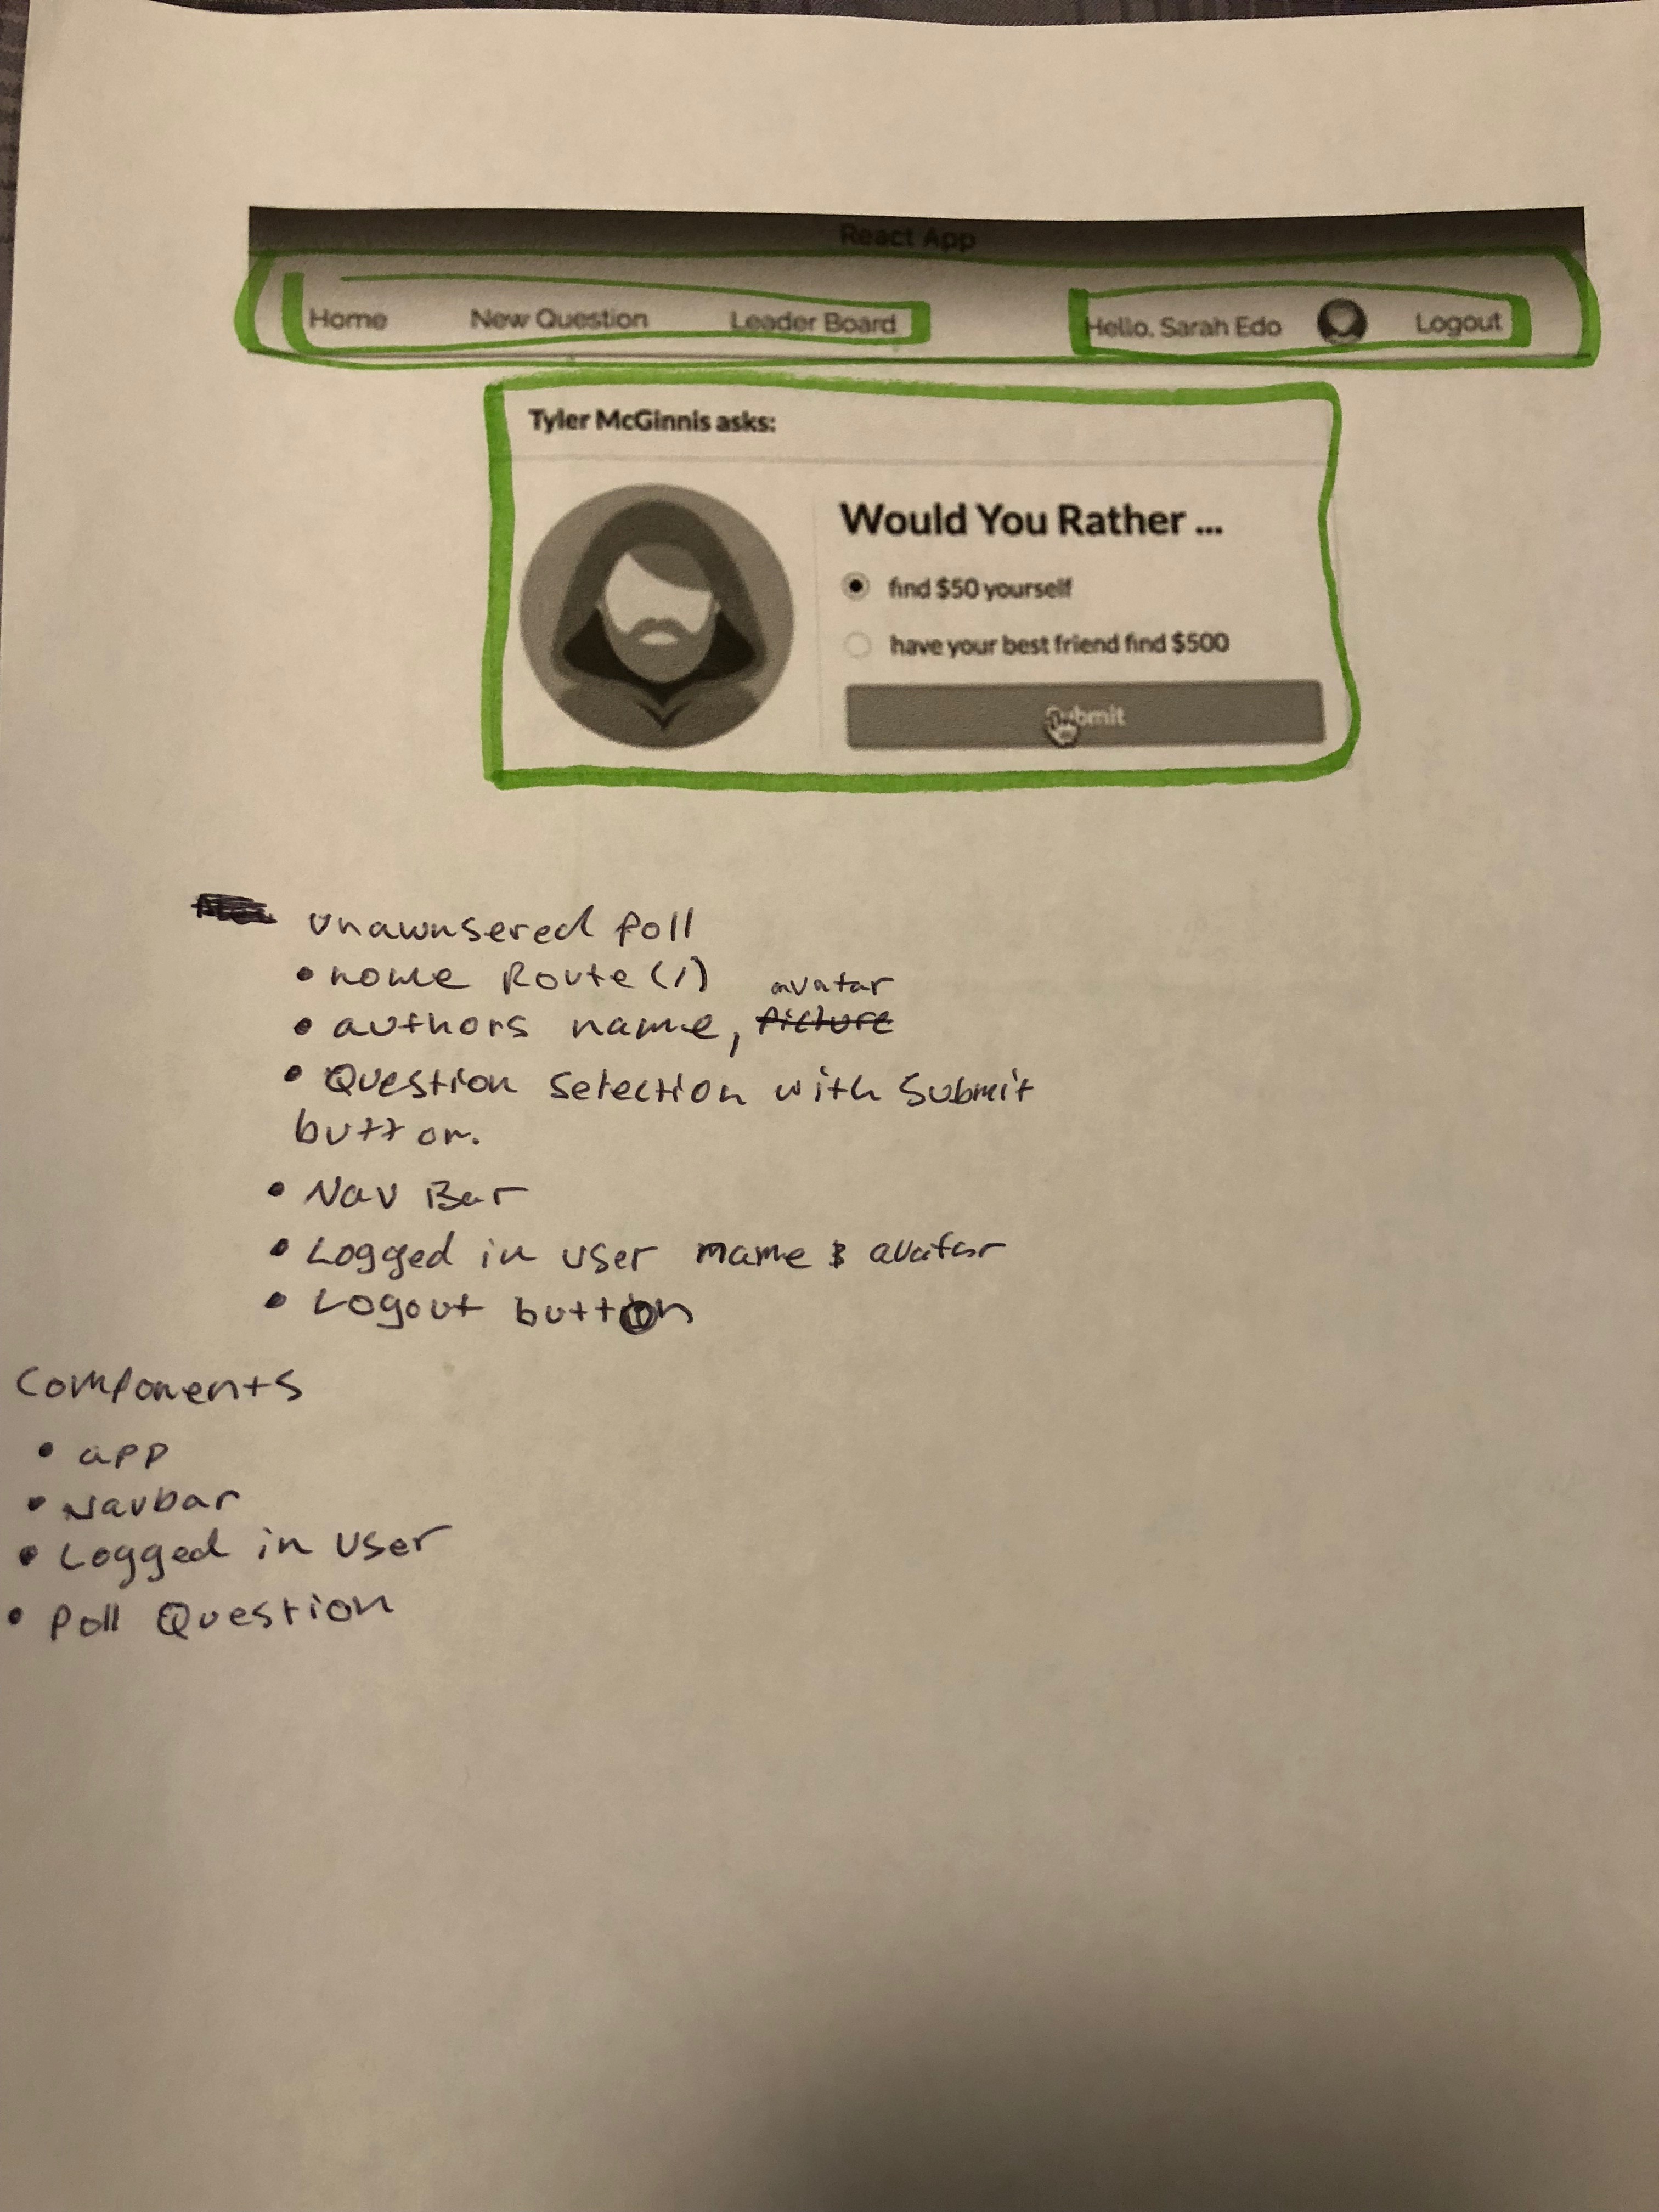 React App
Home New Question Leader Board Hello, Sarah Edo Logout
Tyler McGinnis asks:
Would You Rather ...
find $50 yourself
have your best friend find $500
Submit
unawnsered poll
• Home Route (/)
avatar
• authors name, picture
• Question selection with submit
button.
• Nav Bar
• Logged in user name & avatar
• Logout button
Components
• app
• Navbar
• Logged in user
• Poll Question